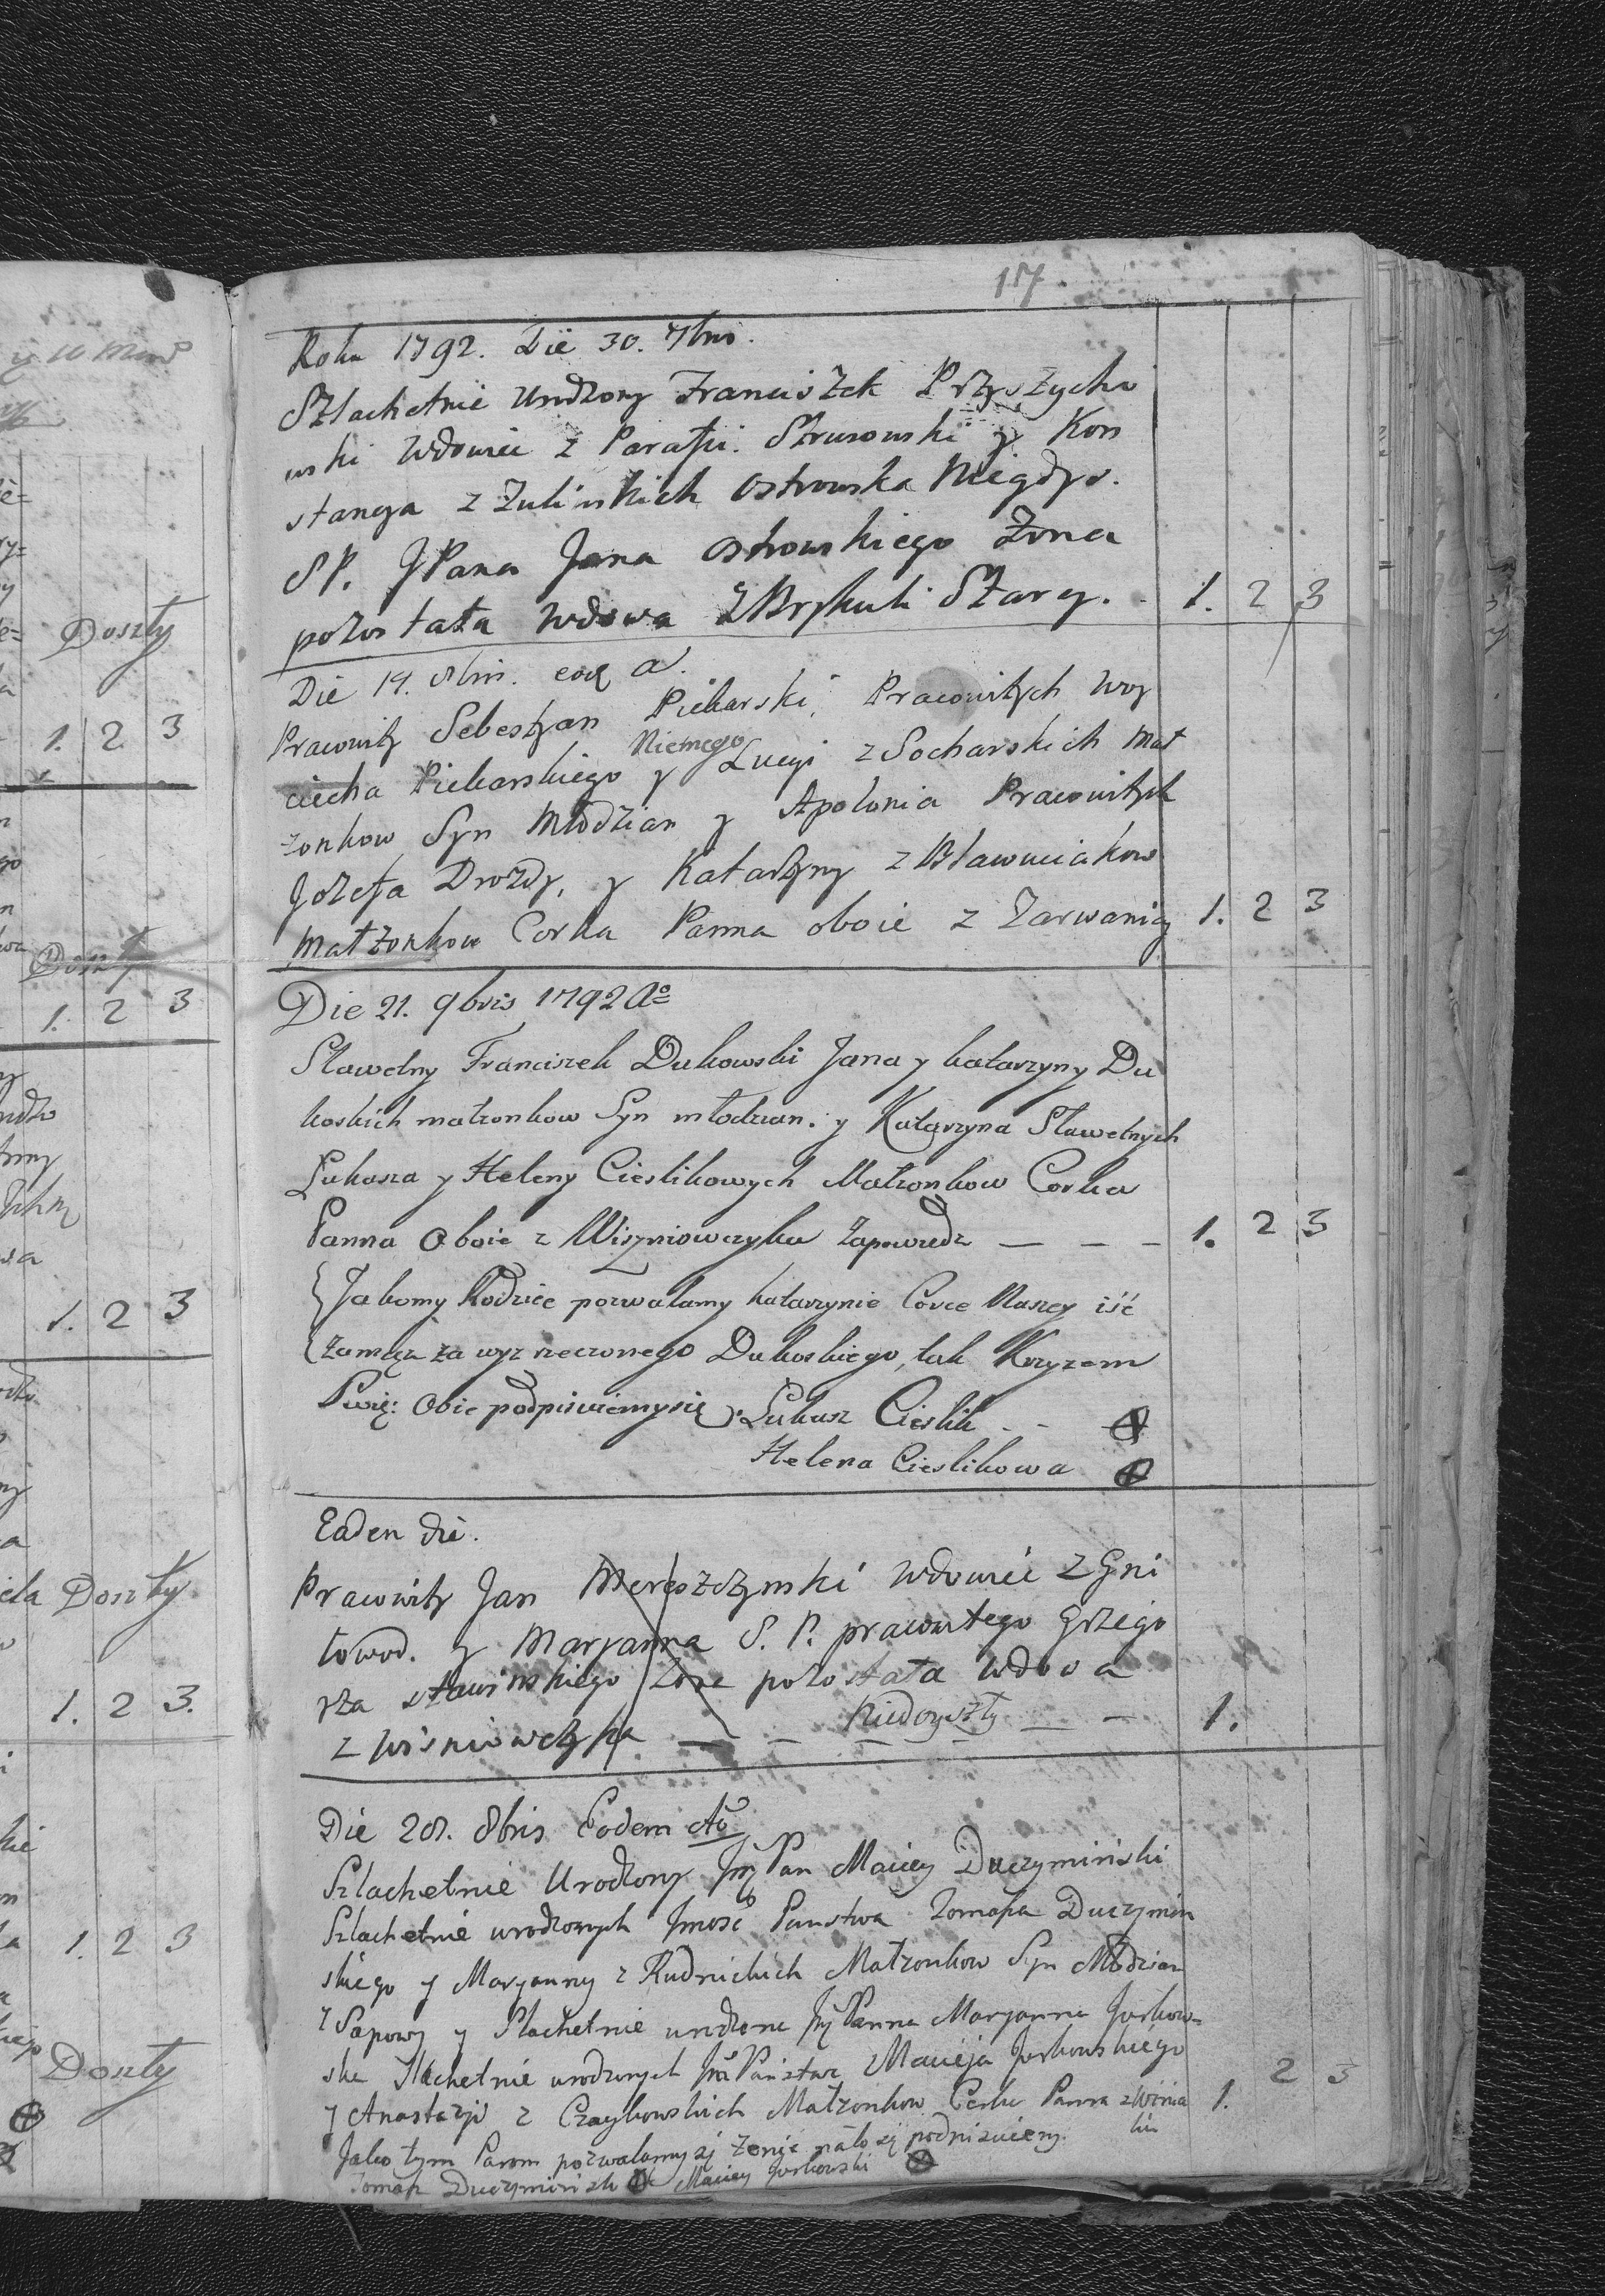 117
Roku 1792. Die 30. 7bris.
Szlachetnie Urodzony Franciszek Przyszycho
wski Wdowiec z Parafii. Strusowski y Kon
stancya z Zulinskich Ostrowska Niegdys.
SP. JPana Jana Ostrowskiego Żona
pozostała Wdowa z Brykuli Starey. 1. 2 3
Die 14. 8bris. eod a.
Pracowity Sebestyan Piekarski, Pracowitych Woy
ciecha Piekarskiego Niemego y Lucyi z Socharskich Mał
żonkow Syn Młodzian y Apolonia Pracowitych
Jozefa Drozdy, y Katarzyny z Sławuciakow
Małżonkow Corka Panna oboie z Zarwanicy 1. 2 3
Die 21. 9bris 1792 Ao
Sławetny Franciszek Dukowski Jana y katarzyny Du
koskich małzonkow Syn młodzian. y Katarzyna Sławetnych
Łukasza y Heleny Cieslikowych Małzonkow Corka
Panna Oboie z Wiszniowczyka Zapowiedz — — — 1. 2 3
Jakomy Rodzice pozwalamy katarzynie Corce Naszey iść
zamąz za wyz rzeczonego Dukoskiego, tak Krzyzem
Swię: Obie podpisuiemysię. Łukasz Cieslik - - 
Helena Cieslikowa
Eadem die.
Pracowity Jan Mereszczynski Wdowiec z Gni
łowod. y Maryanna S. P. pracowitego Grzego
rza Sławinskiego Zona pozostała Wdowa
z Wisniowczyka — - Niedoszły — — 1.
Die 28. 8bris Eodem Ao
Szlachetnie Urodzony Jmć Pan Maciey Duczyminski
Szlachetnie urodzonych Jmość Panstwa Tomasza Duczymin
skiego y Maryanny z Rudnickich Małzonkow Syn Młodzian
z Sapowy y Slachetnie urodzona Jmć Panna Maryanna Jurkow=
ska Slachetnie urodzonych Panstwa Macieja Jurkowskiego
y Anastazyi z Czaykowskich Małzonkow Corka Panna 1. 2 3
Jako tym Parom pozwalamy się zenić na to się podpisuiemy.
Tomasz Duczyminski Maciey Jurkowski
Doszły
1. 2 3
Doszły
1. 2 3
1. 2 3
Doszły
1. 2 3.
1. 2 3
Doszły